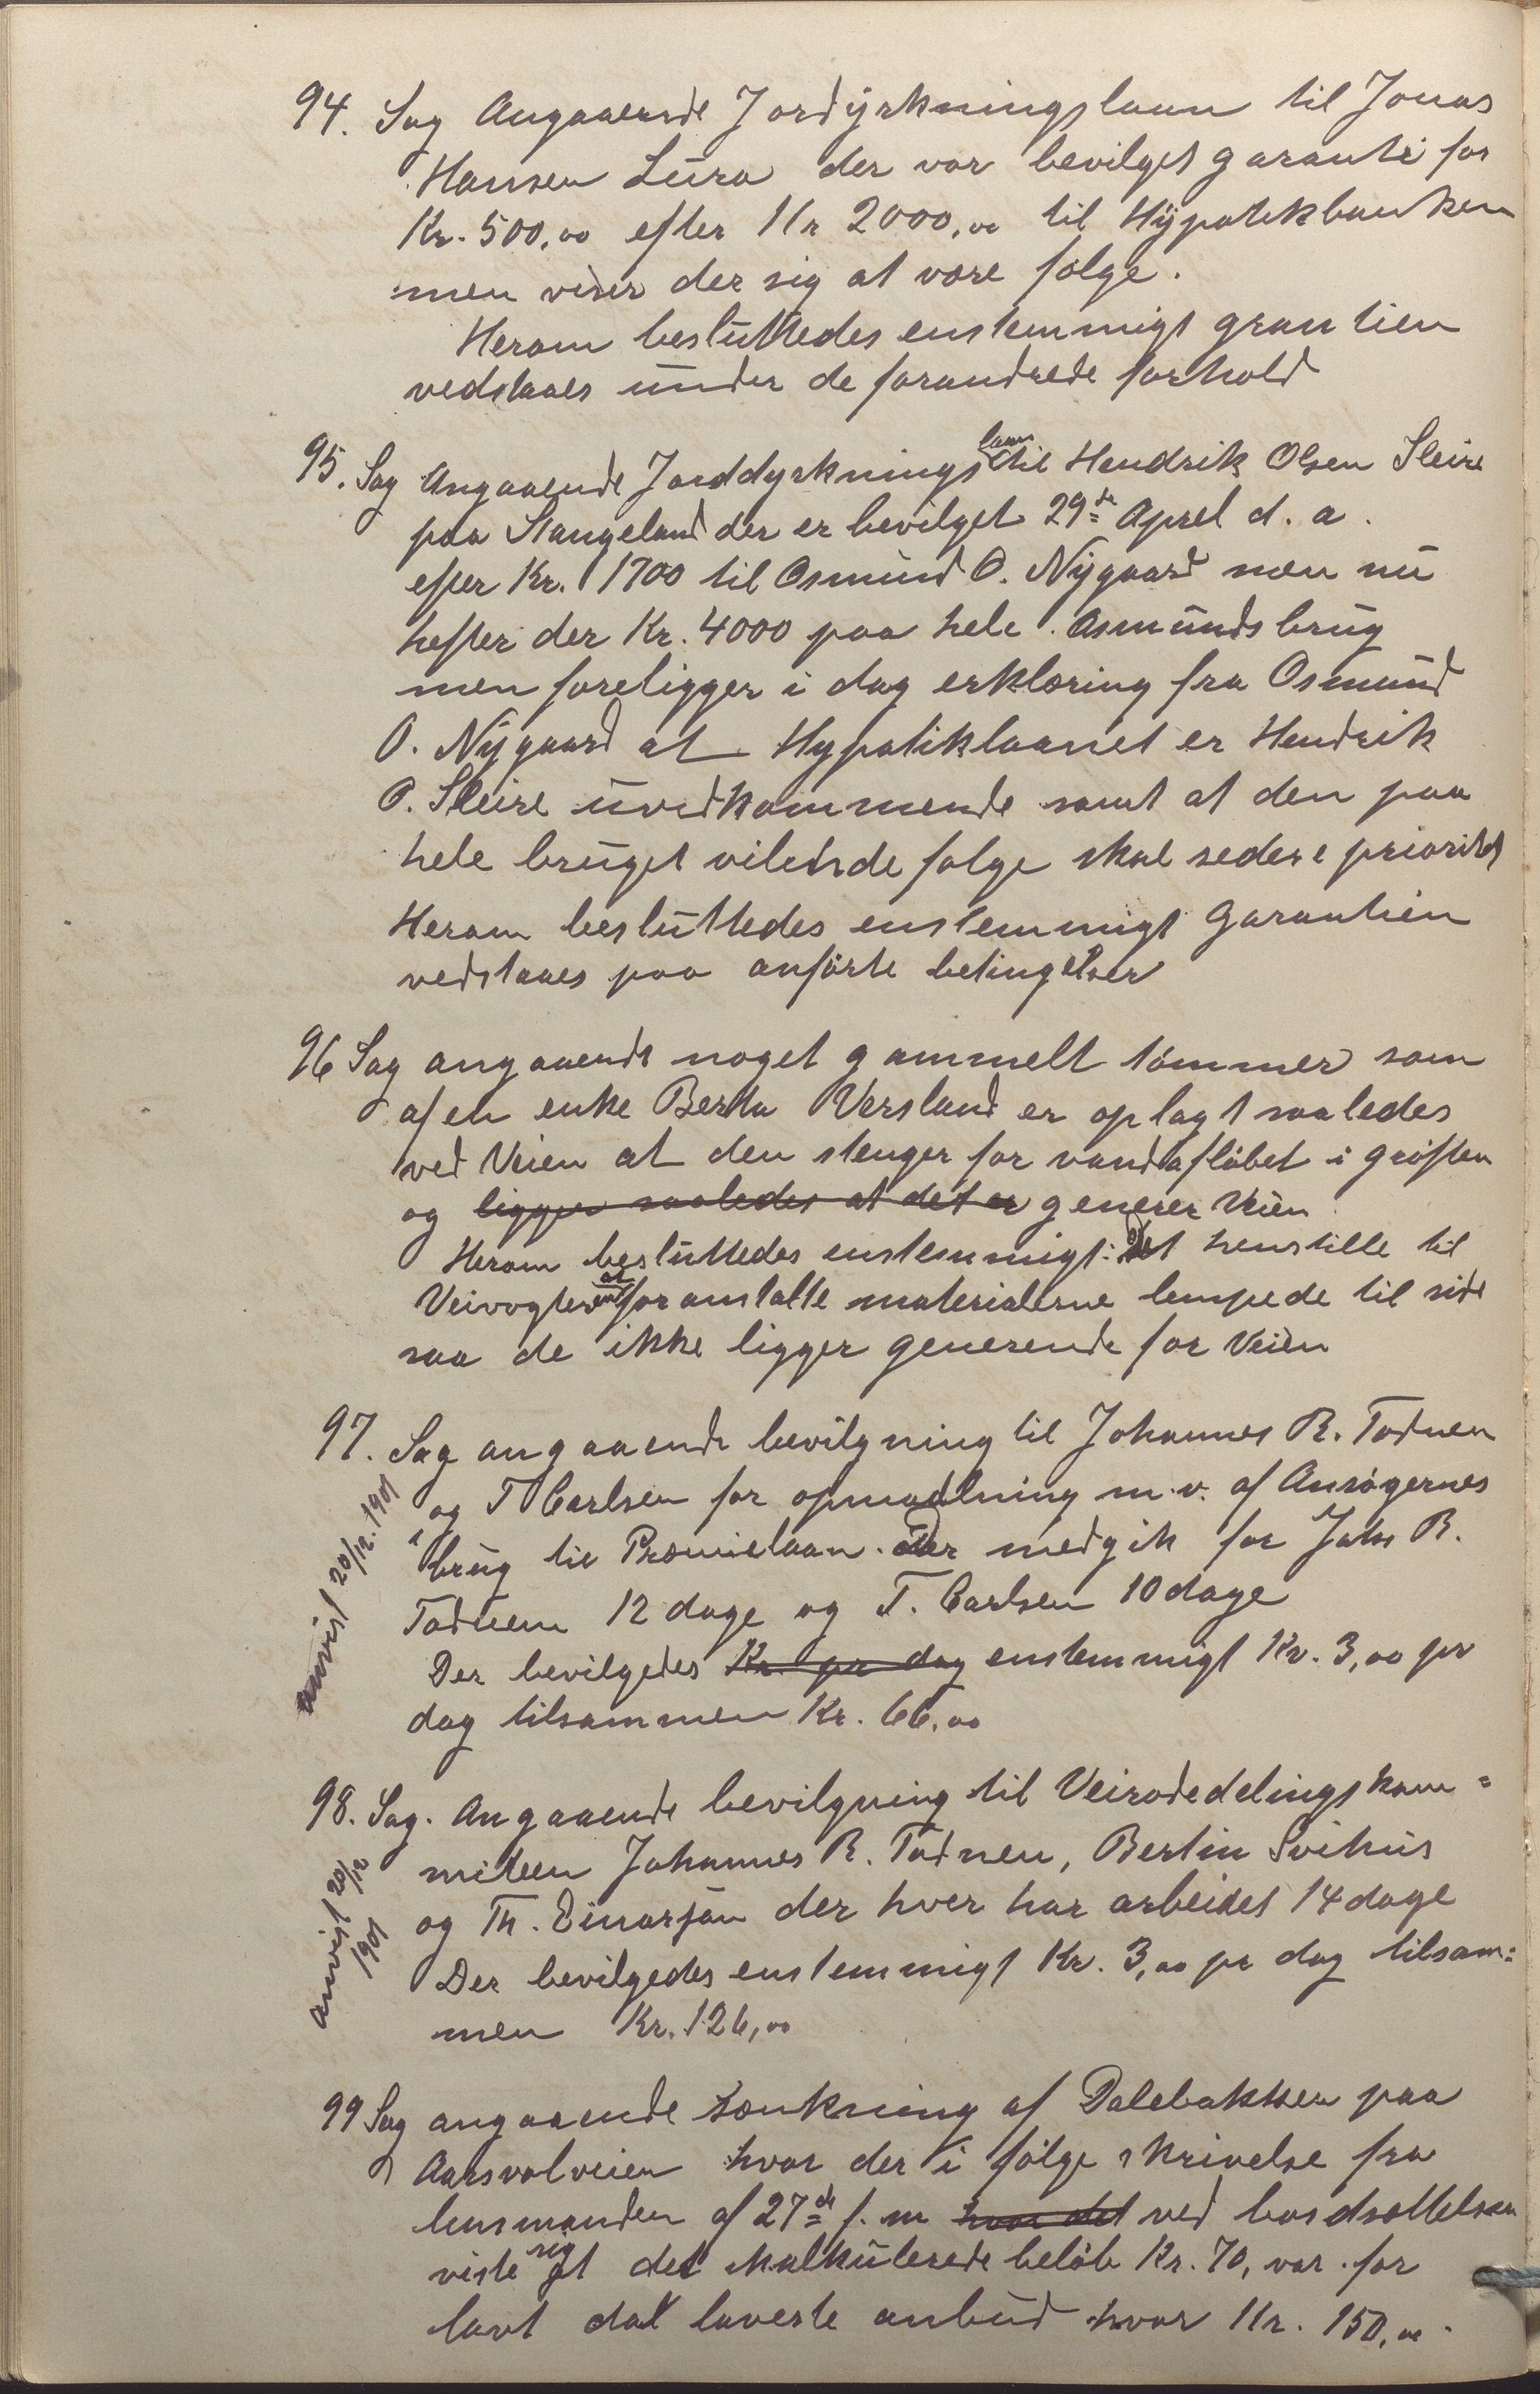 94. Sag Angaaende Jordyrkningslaan til Jonas
Hansen Lura der var bevilget garanti for
Kr. 500,00 efter Kr 2000,00 til Hypotekbanken
men viser der sig at være følge.
Herom besluttedes enstemmigt grantien
vedstaaes under de forandrede forhold
95. Sag Angaaende Jorddyrkningslaan til Hendrik Olsen Sleire
paa Stangeland der er bevilget 29de April d. a.
efter Kr. 1700 til Osmund O. Nygaard men nu
hefter der Kr. 4000 paa hele Asmunds brug
men foreligger i dag erklæring fra Osmund
O. Nygaard at Hypotiklaanet er Hendrik
O. Sleire uvedkommende samt at den paa
hele bruget vilende følge skal sedere prioritet
Herom besluttedes enstemmigt Garantien
vedstaaes paa anførte betingelser
96 Sag angaaende noget gammelt tømmer som
af en enke Berta Versland er oplagt saaledes
ved Veien at den stenger for vandafløbet i grøften
og ligger saaledes at det er generer Veien
Herom besluttedes enstemmigt: At henstille til
Veivogteren at foranstalte materialerne lempede til side
saa de ikke ligger generende for Veien
97. Sag angaaende bevilgning til Johannes R. Todnem
og T Carlsen for opmaalning m.v. af Ansøgernes
brug til Præmielaan. Der medgik for Johs R.
Todnem 12 dage og T. Carlsen 10 dage
Der bevilgedes Kr. pr dag enstemmigt Kr. 3,00 pr
dag tilsammen Kr. 66,00
anvist 20/12. 1901
98. Sag. Angaaende bevilgning til Veirodedelingskom=
miteen Johannes R. Todnem, Bertin Svihus
og Th. Einarsøn der hver har arbeidet 14 dage
Der bevilgedes enstemmigt Kr. 3,00 pr dag tilsam=
men Kr. 126,00
anvist 20/12
1901
99 Sag angaaende Sænkning af Dalebakken paa
Aarsvolveien hvor der i følge skrivelse fra
lensmanden af 27de f. m hvor det ved bordsættelsen
viste sig at det kalkulerede beløb Kr. 70, var for
lavt da laveste anbud hvor Kr. 150,00